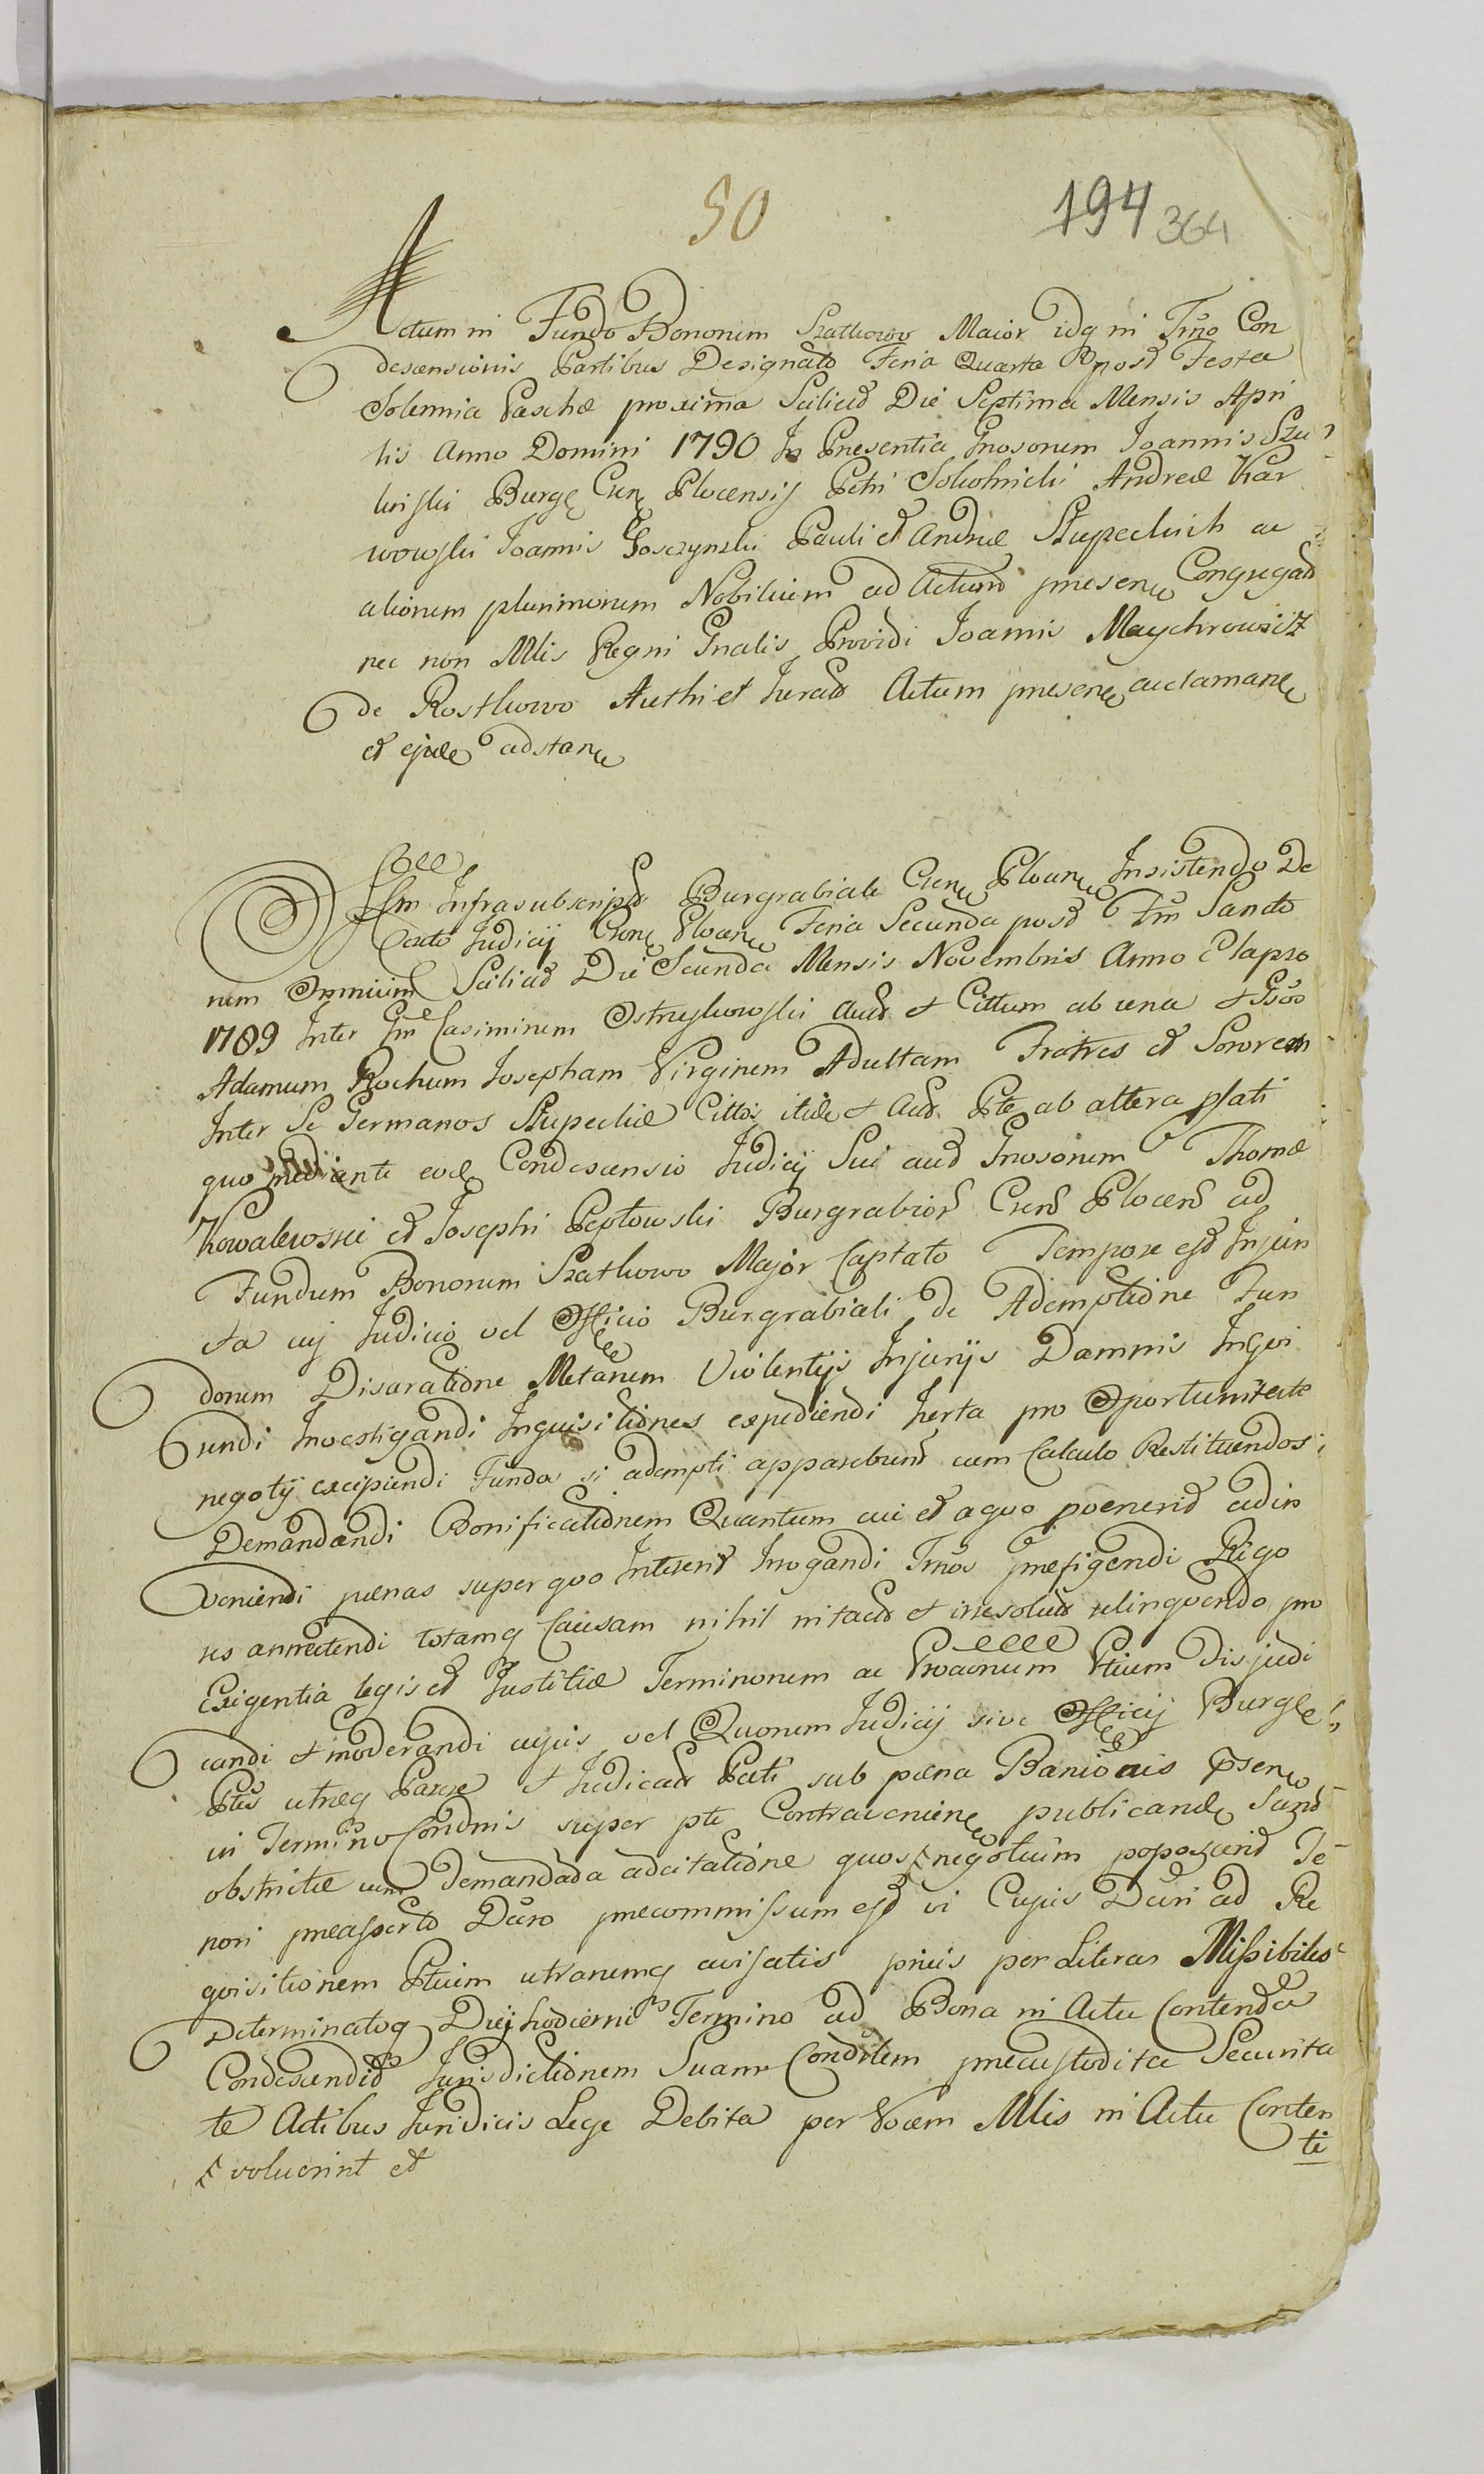 50
194 364
Actum in Fundo Bonorum Szatkowo Maior idq in Trno Con
descensionis Partibus Designato Feria Quarta post Festa
Solennia Paschæ proxima Scilicet Die Septima Mensis Apri
lis Anno Domini 1790 In Præsentia Gnosorum Joannis
Burg Cren Plocensis Petri Sokolnicki Andreæ Kar
wowski Joannis Goszczynski Pauli et Andreæ Słupeckich ac
aliorum plurimorum Nobilium ad Actum præsen Congregat
nec non Mlis Regni Gnalis Providi Joannis Maychrowicz
de Rostkowo Auth et Jurat Actum præsen acclaman
et adstan
Offm Infrasubscript Burgrabiale Cren Plocen Insistendo De
creto Judicij Cren Plocen Feria Secunda post Fm Sancto
rum Omnium Scilicet Die Secunda Mensis Novembris Anno Elapso
1789 Inter Gm Casimirum Ostrzykowski Act et Cittum ab una et Gsos
Adamum Rochum Josepham Virginem Adultam Fratres et Sororem
Inter Se Germanos Słupeckie Cittos et Act Pte ab altera
quo mediante Condescensio Judicij Sui Gnosorum Thomæ
Kowalewski et Josephi Pepłowski Burgrabior Cren Plocen ad
Fundum Bonorum Szatkowo Major Captato Tempore est Injun
cta cuj Judicio vel Officio Burgrabiali de Ademptione Fun
dorum Disaratione Metarum Violentijs Injurijs Damnis Inqui
rendi Investigandi Inquisitiones expediendi Jurta pro Oportunitate
negotij excipiendi Fundos si adempti apparebunt cum Calculo Restituendos
Demandandi Bonificationem Quantum cui et a quo advenerit adin
veniendi pænas super quo Intererit Irrogandi Trnos præfigendi Rigo
res annectendi totamq Causam nihil intact et irresolut relinquendo pro
Exigentia legis et Justitiæ Terminorum ac Procconum Ptium Disjudi
candi et moderandi cujus vel Quorum Judicij sive Officij Burgle
Ptes utræq Parere et Judicat Pati sub pæna Banionis præsen
in Termino Condnis super pte Contravenien publicand Sunt
obstrictæ cum Demandata adcitatione quos negotium poposcerit Te
nori præasserto Dcro præcommissum est vi Cujus Dcri ad Re
quisitionem Ptium utrarumq avisatis prius per Literas Missibiles
Determinatoq Diej hodierni Termino ad Bona in Actu Contenta
Condescendit Jurisdictionem Suam Condlem præcustodita Securita
te Actibus Juridicis Lege Debita per Vocem Mlis in Actu Conten
ti
voluerint et